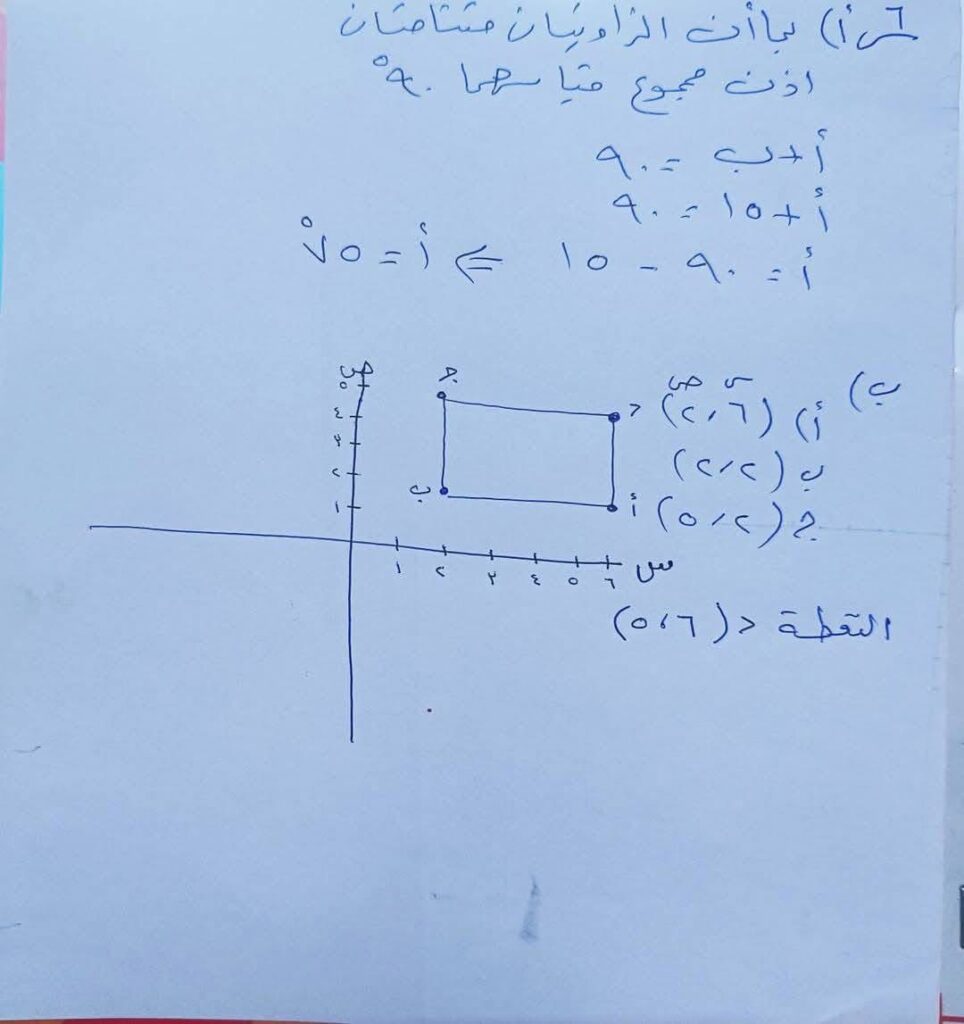 س٦ أ) بما أن الزاويتان متتامتان
اذن مجموع قياسهما ٩٠°
أ + ب = ٩٠
أ + ١٥ = ٩٠
أ = ٩٠ - ١٥ ⇐ أ = ٧٥°
ب)
س ص
أ) (٦، ٢)
ب (٢، ٢)
ج (٢، ٥)
ص
٥
٤
٣
٢
١
ج
د
ب
أ
١ ٢ ٣ ٤ ٥ ٦ س
النقطة د (٦، ٥)